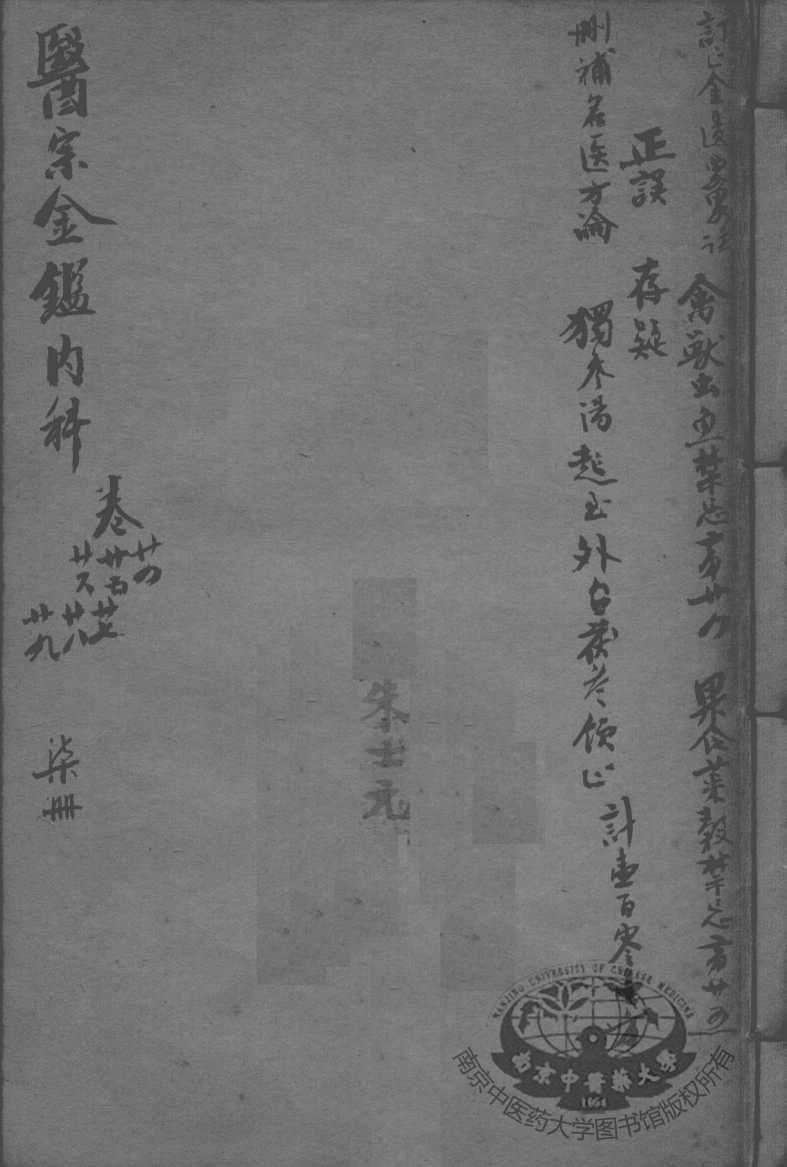 訂正金匱要畧註
禽獸虫魚禁忌方廿四
果食菜穀禁忌方廿五
正誤 存疑
刪補名医方論
獨参湯起至外台茯苓飲止
計壹百零
朱士元
醫宗金鑑内科
卷廿四
廿五
廿六
廿七
廿八
廿九
柒冊
NANJING UNIVERSITY OF CHINESE MEDICINE
南京中醫藥大學
1954
南京中医药大学图书馆版权所有